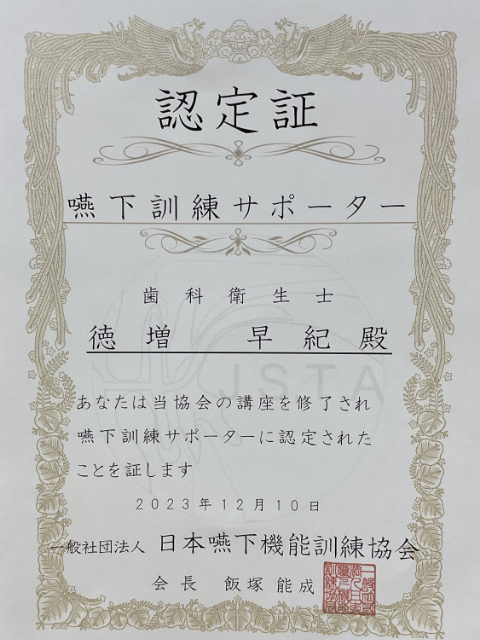 認定証
嚥下訓練サポーター
歯科衛生士
徳増 早紀殿
JSTA
あなたは当協会の講座を修了され
嚥下訓練サポーターに認定された
ことを証します
2023年12月10日
一般社団法人 日本嚥下機能訓練協会
会長 飯塚能成